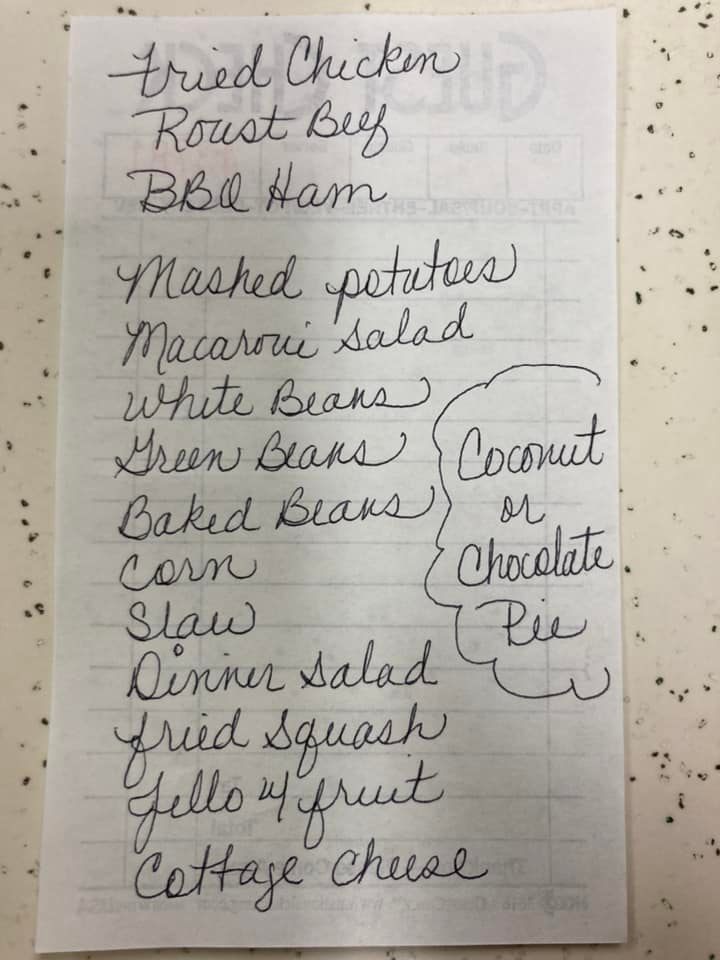 Fried Chicken
Roast Beef
BBQ Ham
Mashed potatoes
Macaroni Salad
White Beans
Green Beans
Baked Beans
Corn
Slaw
Dinner Salad
fried Squash
Jello w/ fruit
Cottage Cheese
Coconut
or
Chocolate
Pie
GUEST CHECK